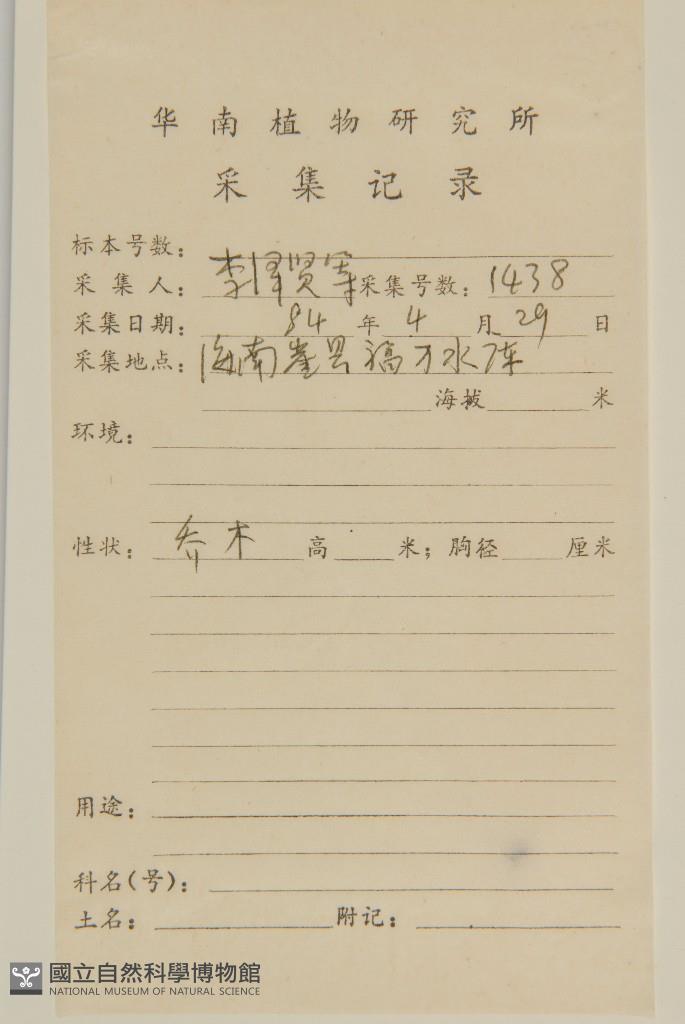 华南植物研究所
采集记录
标本号数：
采集人：李泽贤等 采集号数：1438
采集日期：84年4月29日
采集地点：海南崖县福万水库
海拔 米
环境：
性状：乔木 高 米；胸径 厘米
用途：
科名(号)：
土名： 附记：
國立自然科學博物館
NATIONAL MUSEUM OF NATURAL SCIENCE